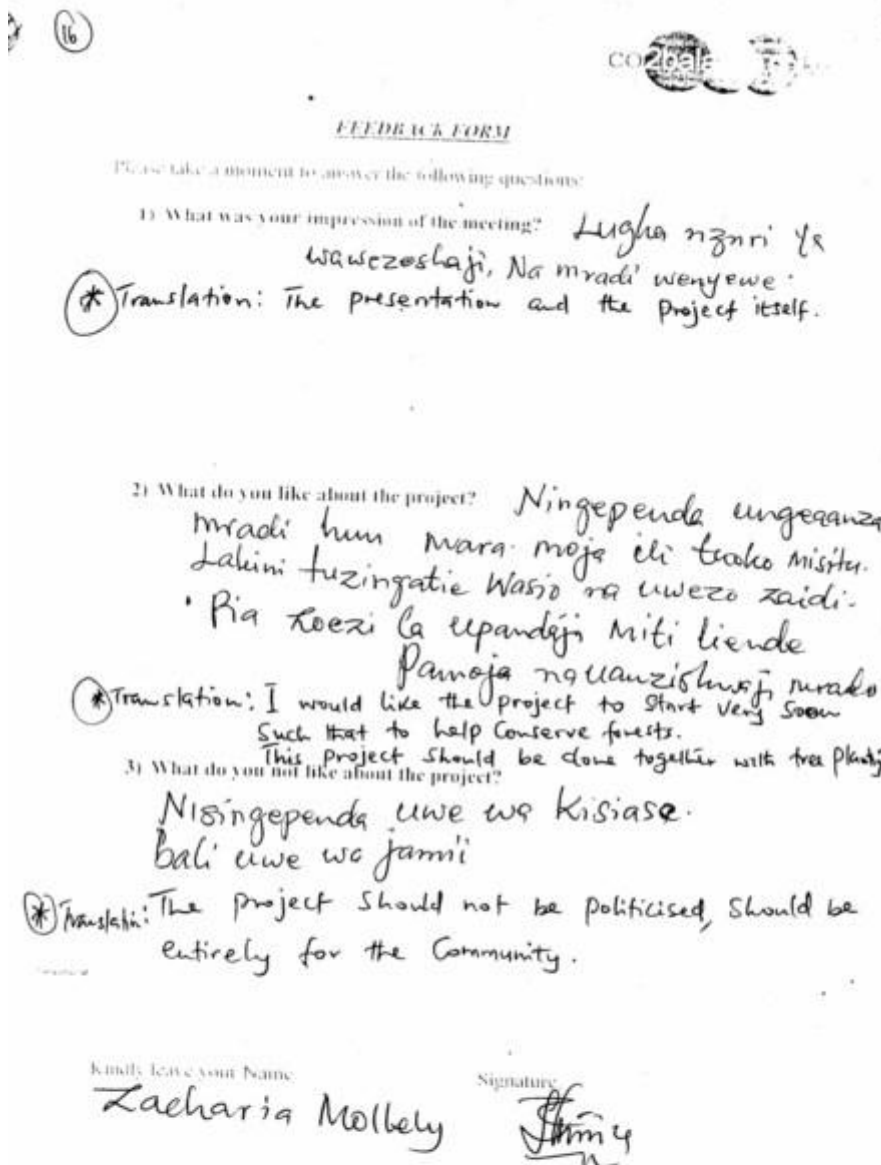 16
CO2bala
FEEDBACK FORM
Please take a moment to answer the following questions:
1) What was your impression of the meeting? Lugha nzuri ya
wawezeshaji, Na mradi wenyewe.
* Translation: The presentation and the project itself.
2) What do you like about the project? Ningependa ungeaanza
mradi huu mara moja ili tuoko misitu.
Lakini tuzingatie Wasio na uwezo zaidi.
Pia zoezi la upandaji Miti liende
Pamoja na uanzishwaji
* Translation: I would like the project to Start very Soon
Such that to help Conserve forests.
This project Should be done together with tree
3) What do you not like about the project?
Nisingependa uwe wa Kisiasa.
bali uwe wa jamii
* The project Should not be Politicised, Should be
entirely for the Community.
Kindly leave your Name Signature
Zacharia